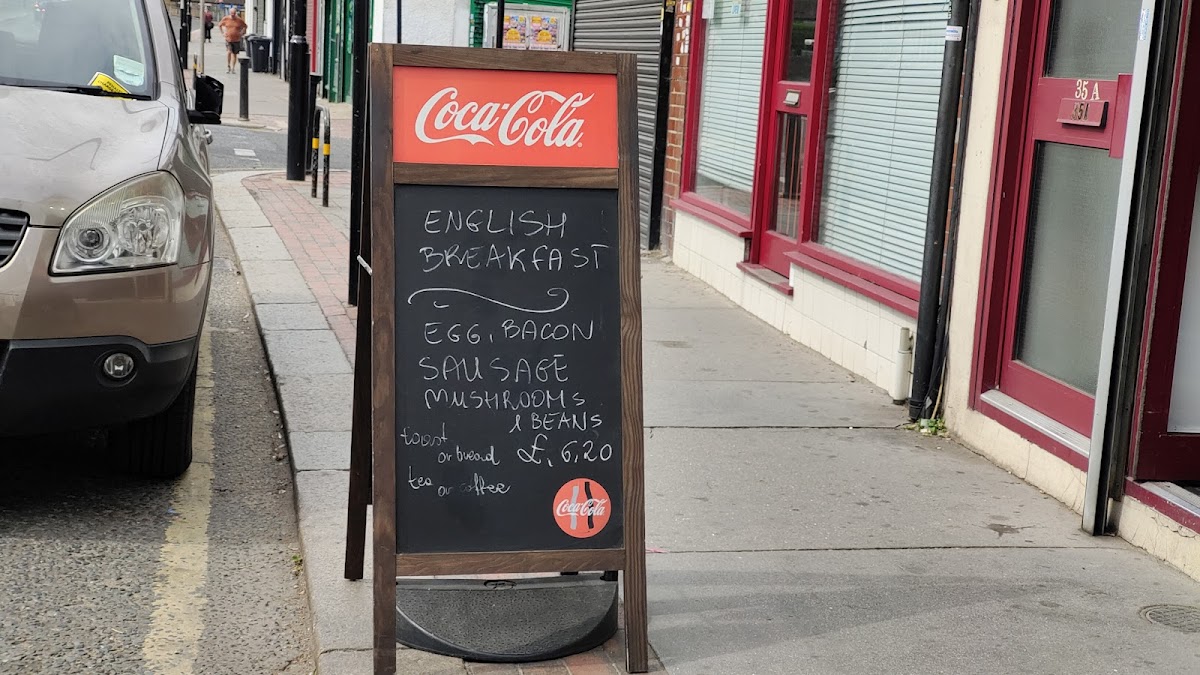 Coca-Cola
ENGLISH
BREAKFAST
EGG, BACON
SAUSAGE
MUSHROOMS
& BEANS
toast
or bread £6,20
tea or coffee
Coca-Cola
35 A
35A